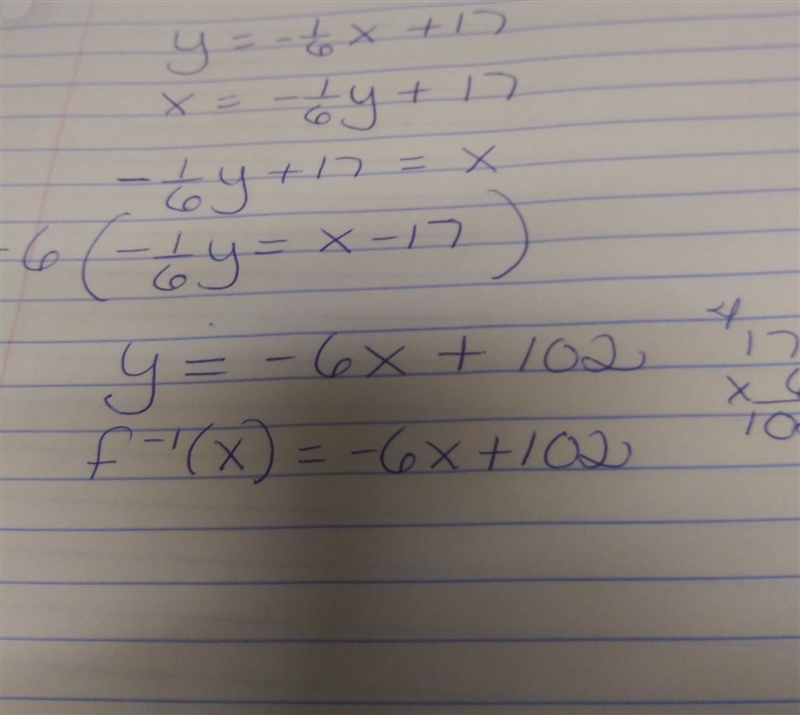 y = -1/6x + 17
x = -1/6y + 17
-1/6y + 17 = x
-6(-1/6y = x - 17)
y = -6x + 102
f⁻¹(x) = -6x + 102
4
17
x
10